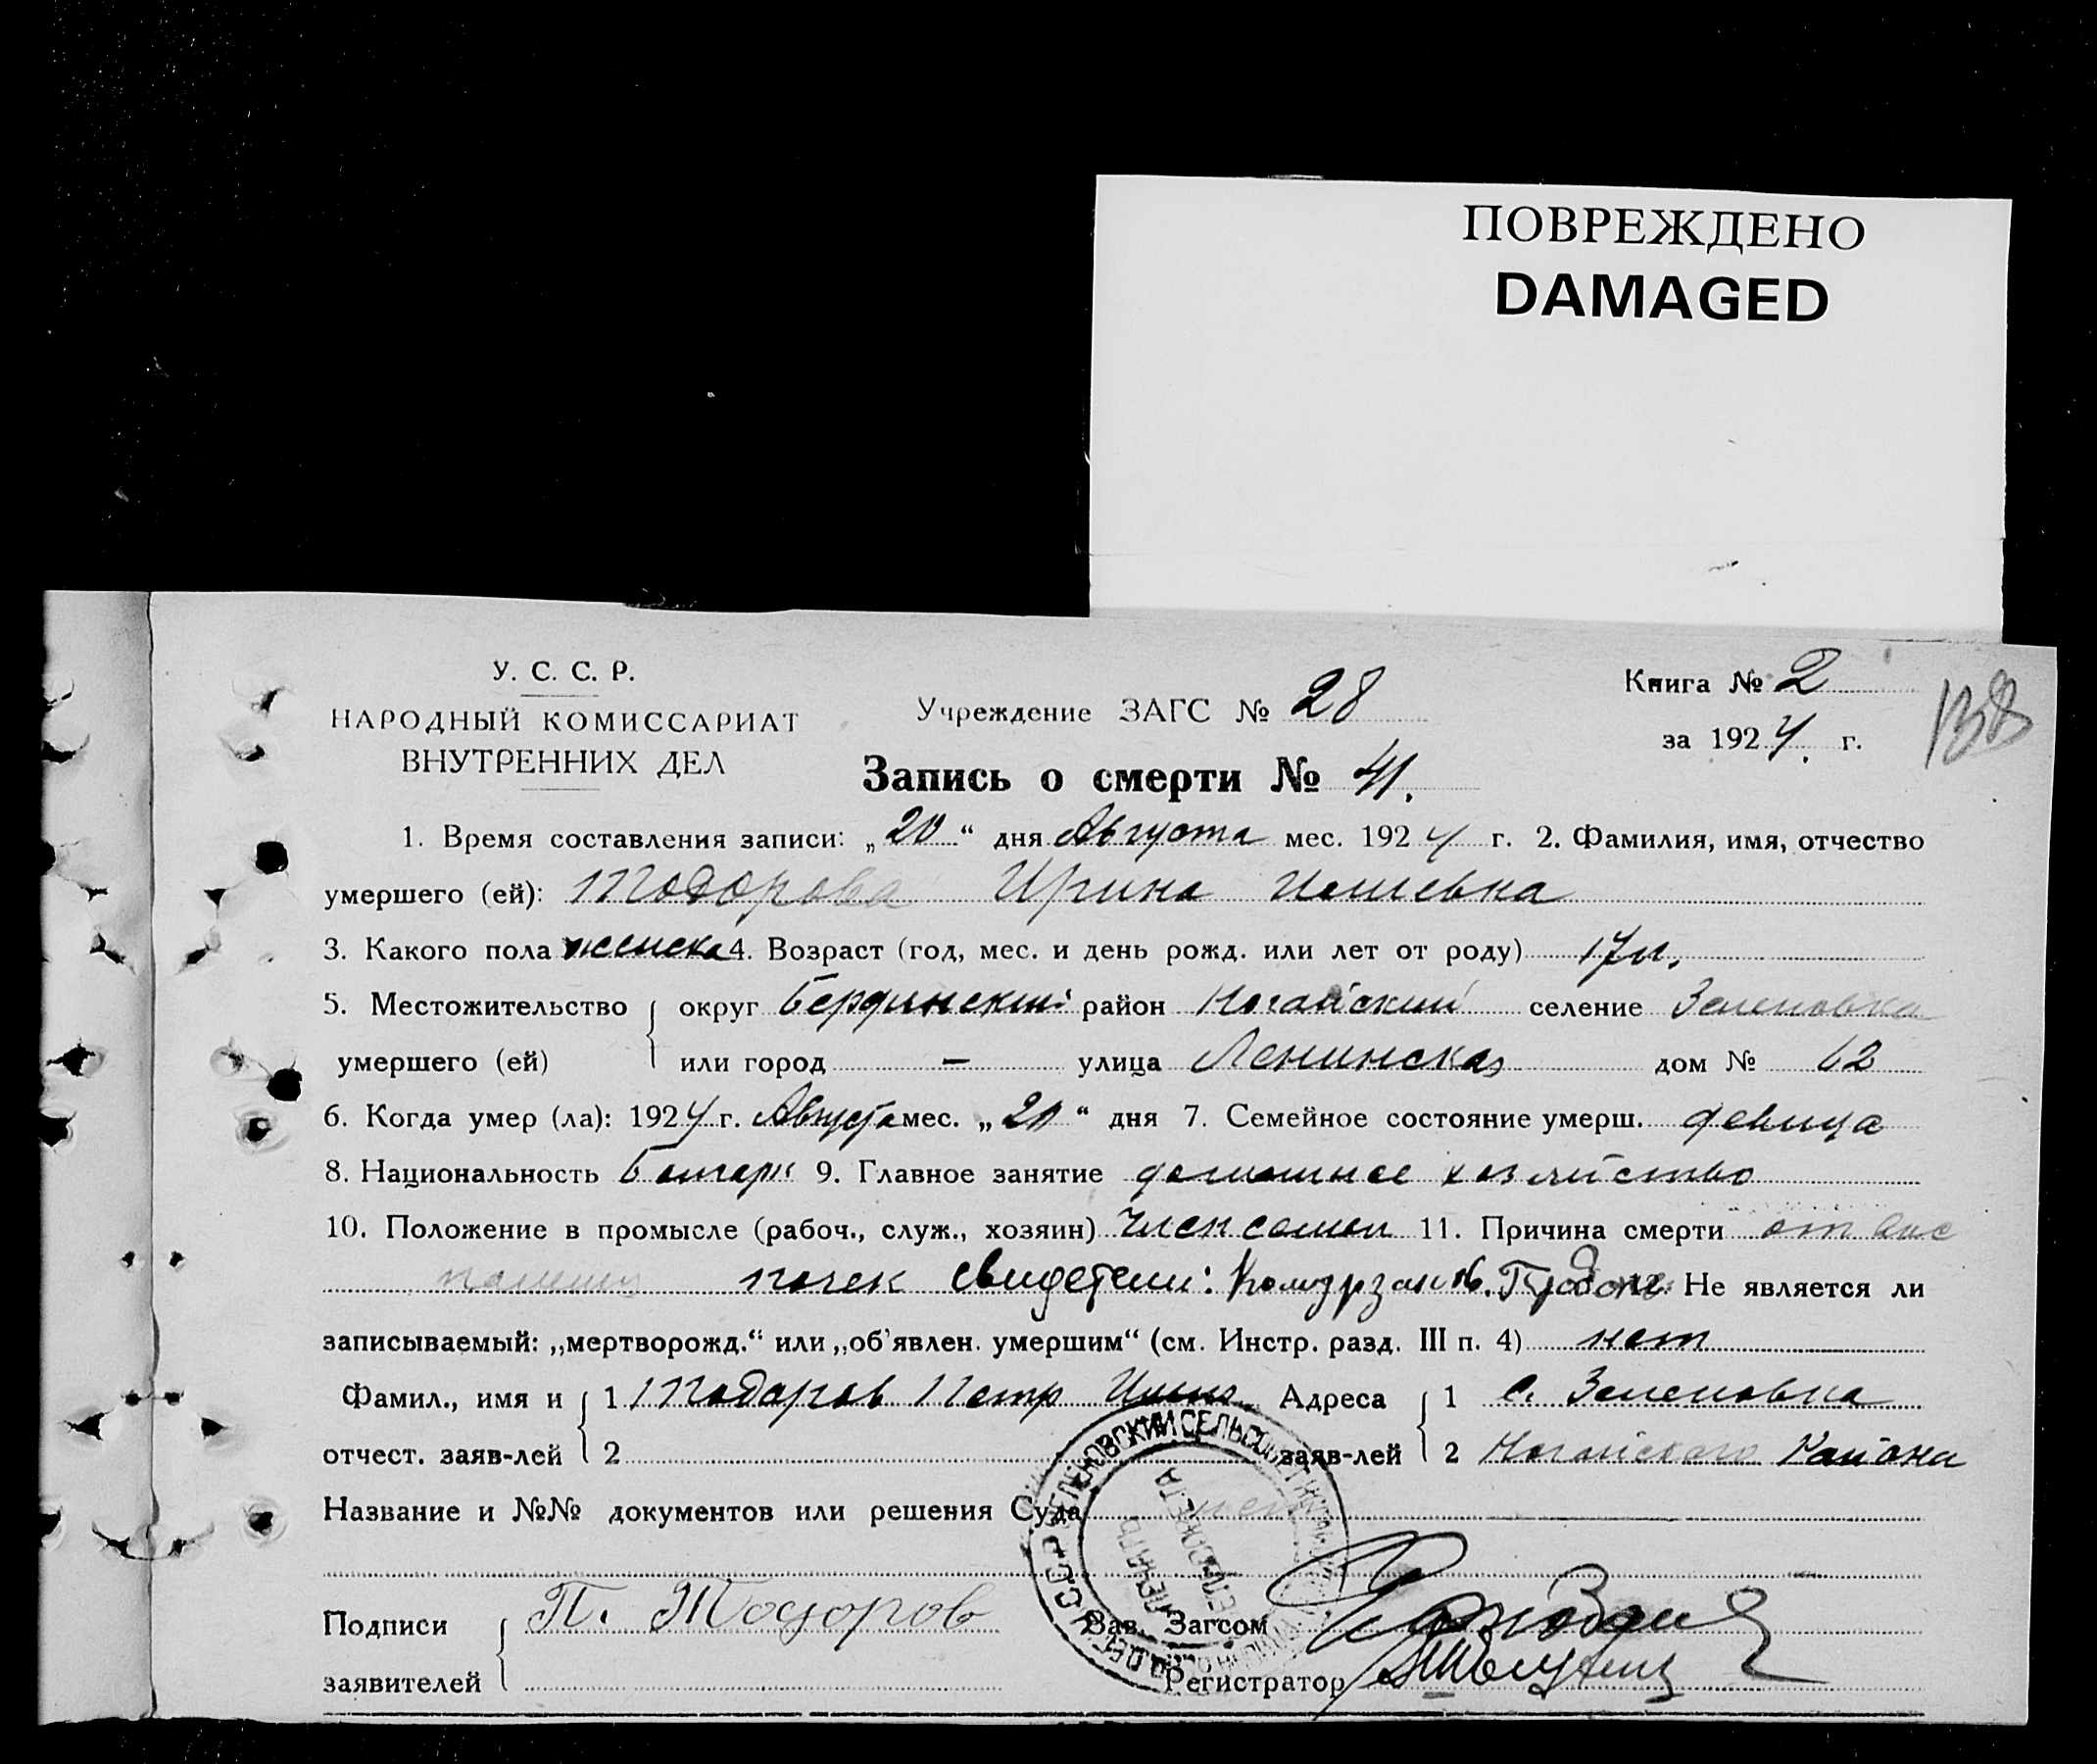 ПОВРЕЖДЕНО
DAMAGED
У. С. С. Р.
НАРОДНЫЙ КОМИССАРИАТ
ВНУТРЕННИХ ДЕЛ
Учреждение ЗАГС № 28
Книга № 2
за 1924 г.
138
Запись о смерти № 41.
1. Время составления записи: „20“ дня Августа мес. 1924 г. 2. Фамилия, имя, отчество
умершего (ей): Тодорова Ирина
3. Какого пола женска 4. Возраст (год, мес. и день рожд. или лет от роду) 17 л.
5. Местожительство округ Бердянский район Ногайский селение Зеленовка
умершего (ей) или город — улица Ленинская дом № 62
6. Когда умер (ла): 1924 г. Августа мес. „20“ дня 7. Семейное состояние умерш. девица
8. Национальность Болгарк 9. Главное занятие домашнее хозяйство
10. Положение в промысле (рабоч., служ., хозяин) член семьи 11. Причина смерти от вос
почек свидетели: 12. Не является ли
записываемый: „мертворожд.“ или „об'явлен. умершим“ (см. Инстр. разд. III п. 4) нет
Фамил., имя и 1 Тодоров Петр Адреса 1 с. Зеленовка
отчест. заяв-лей 2 заяв-лей 2 Ногайского Района
Название и №№ документов или решения Суда нет
Подписи П. Тодоров Зав. Загсом
заявителей Регистратор